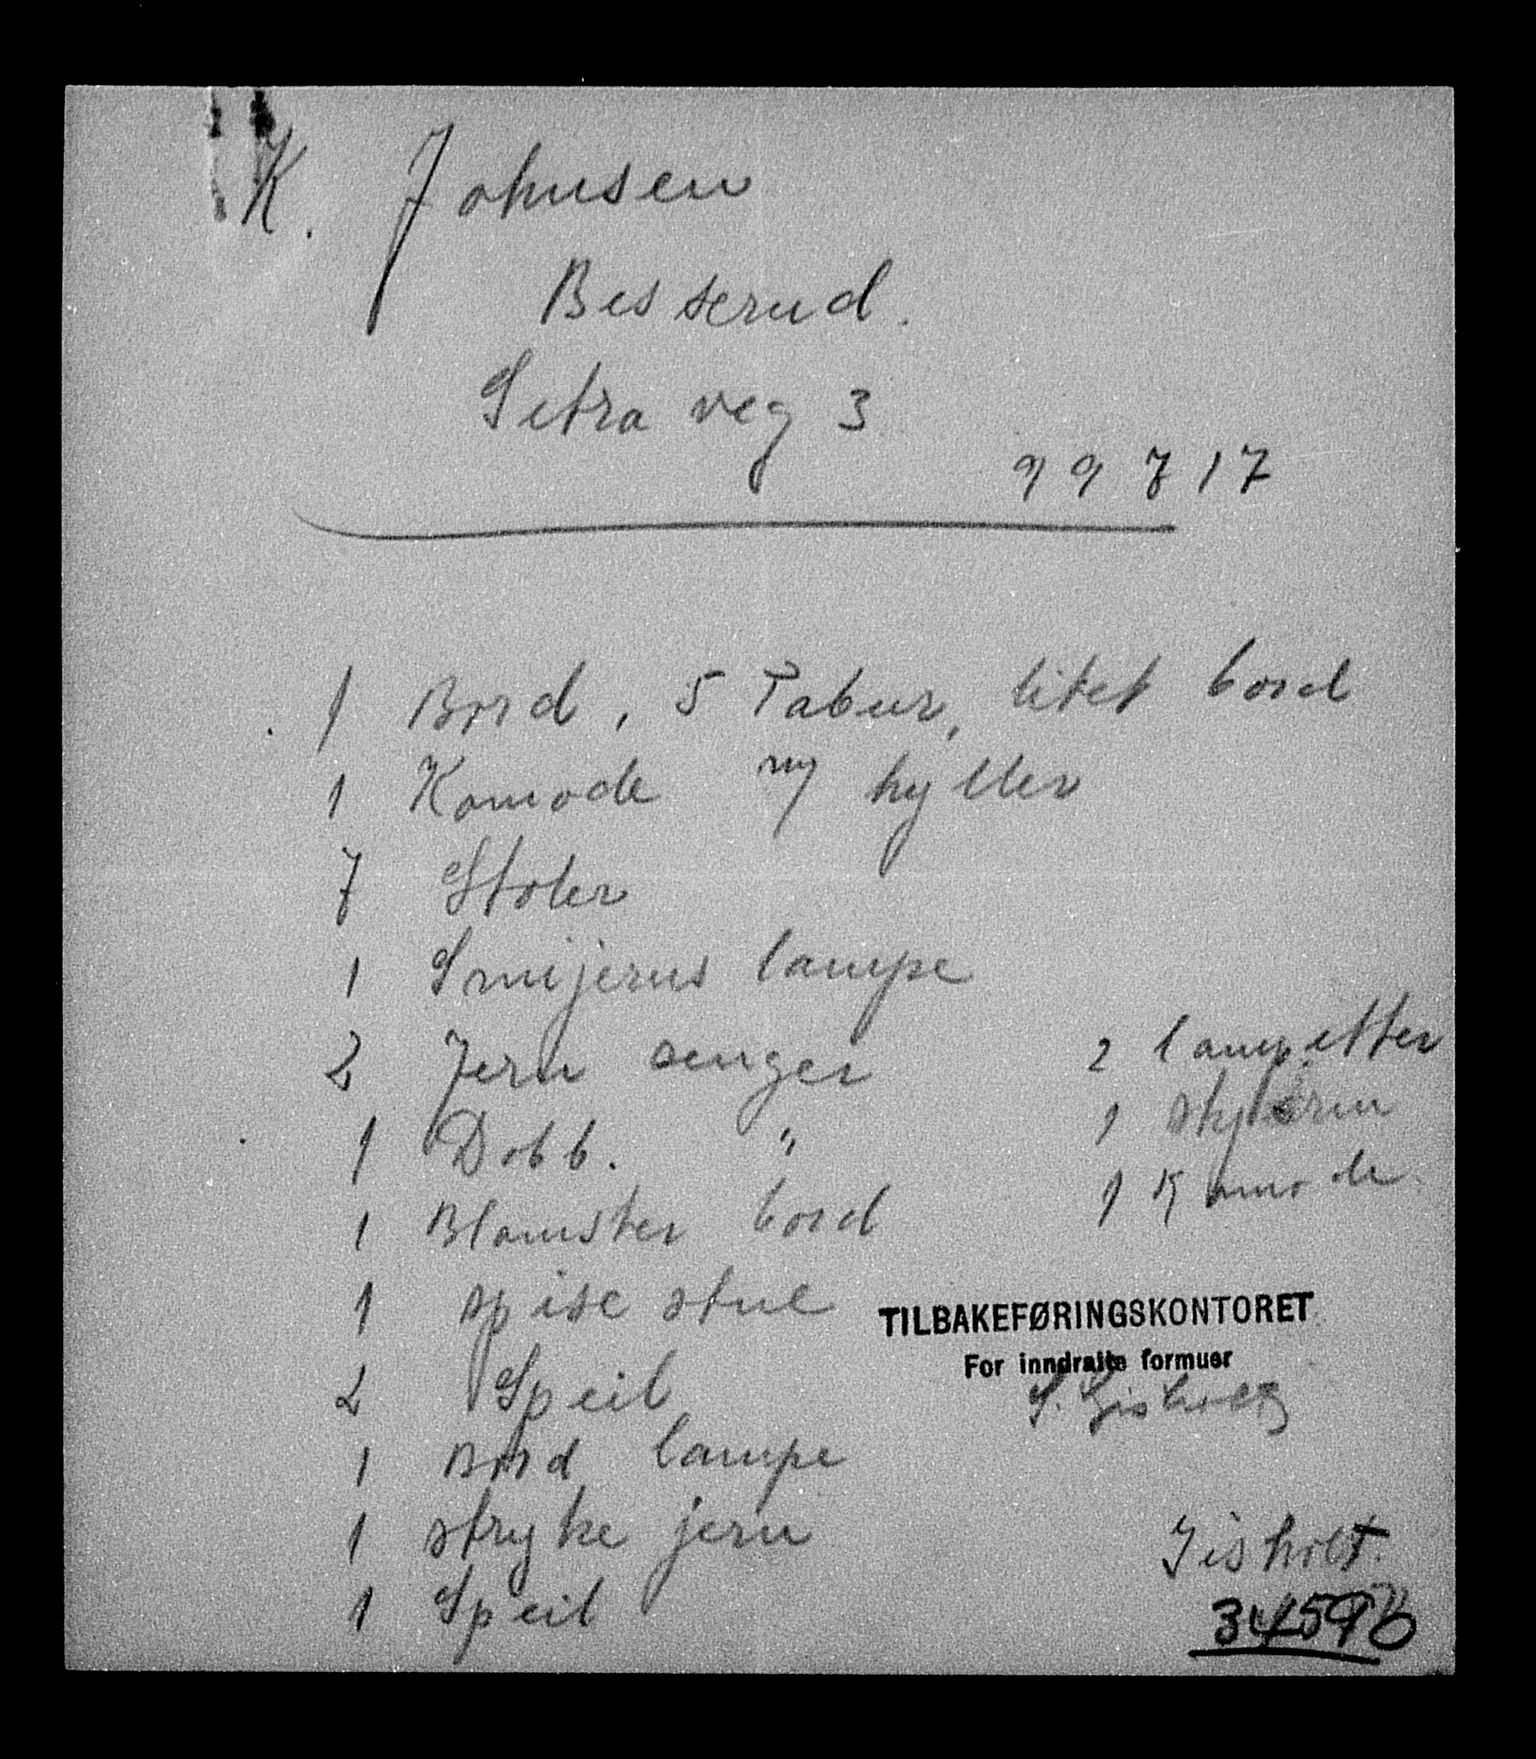 K. Johnsen
Besserud.
Setra veg 3
99717
1 Bord, 5 Tabur, litet bord
1 Komode m/ hyller
7 Stoler
1 Smijerns lampe
2 Jern senger
1 Dobb. "
1 Blomster bord
1 spise stue
2 Speil
1 Bord lampe
1 stryke jern
1 Speil
2 lampetter
1
1 Komode
TILBAKEFØRINGSKONTORET
For inndratte formuer
S. Gisholt
Gisholt.